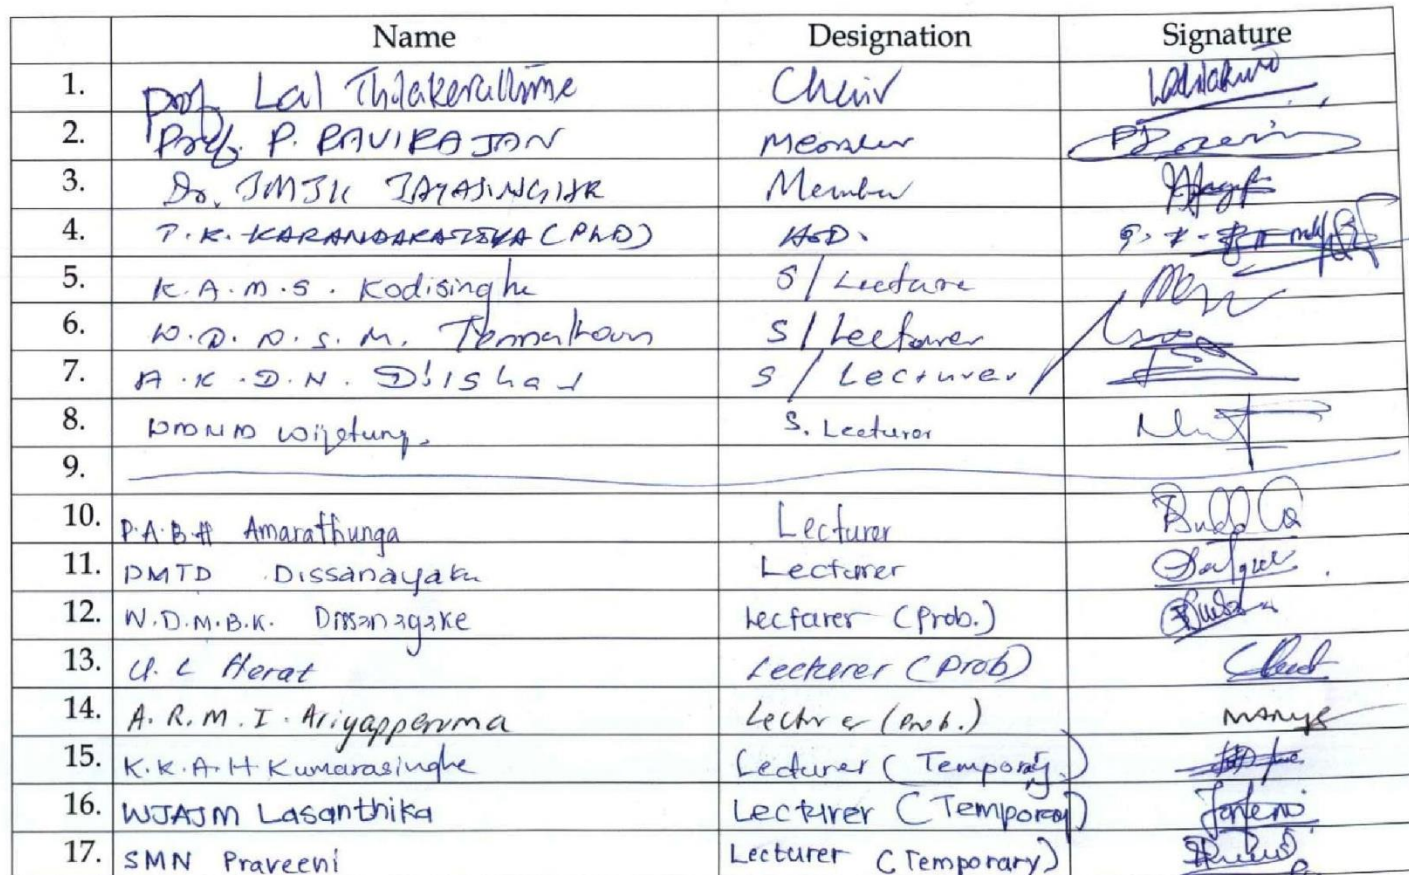 Name Designation Signature
1. Prof. Lal Thilakerathne Chair
2. Prof. P. RAVIRAJAN Member
3. Dr. JMJK JAYASINGHE Member
4. T.K. KARANDAKATIYA (PhD) HOD.
5. K.A.M.S. Kodisinghe S/Lecture
6. W.D.N.S.M. S/Lecturer
7. A.K.D.N. Dilshan S/Lecturer
8. WMNM Wijetung. S. Lecturer
9.
10. P.A.B.H Amarathunga Lecturer
11. DMTD Dissanayake Lecturer
12. W.D.M.B.K. Dissanayake Lecturer (Prob.)
13. U. L Herat Lecturer (Prob)
14. A.R.M.I. Ariyapperuma Lecturer (Prob.)
15. K.K.A.H Kumarasinghe Lecturer (Temporary)
16. WJAJM Lasanthika Lecturer (Temporary)
17. SMN Praveeni Lecturer (Temporary)